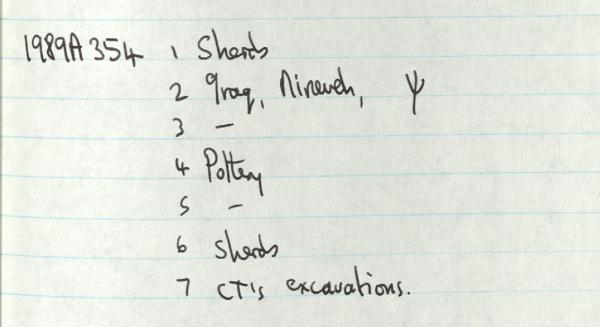 1989A 354 1 Sherds
2 Iraq, Nineveh, Ψ
3 –
4 Pottery
5 –
6 Sherds
7 CT's excavations.